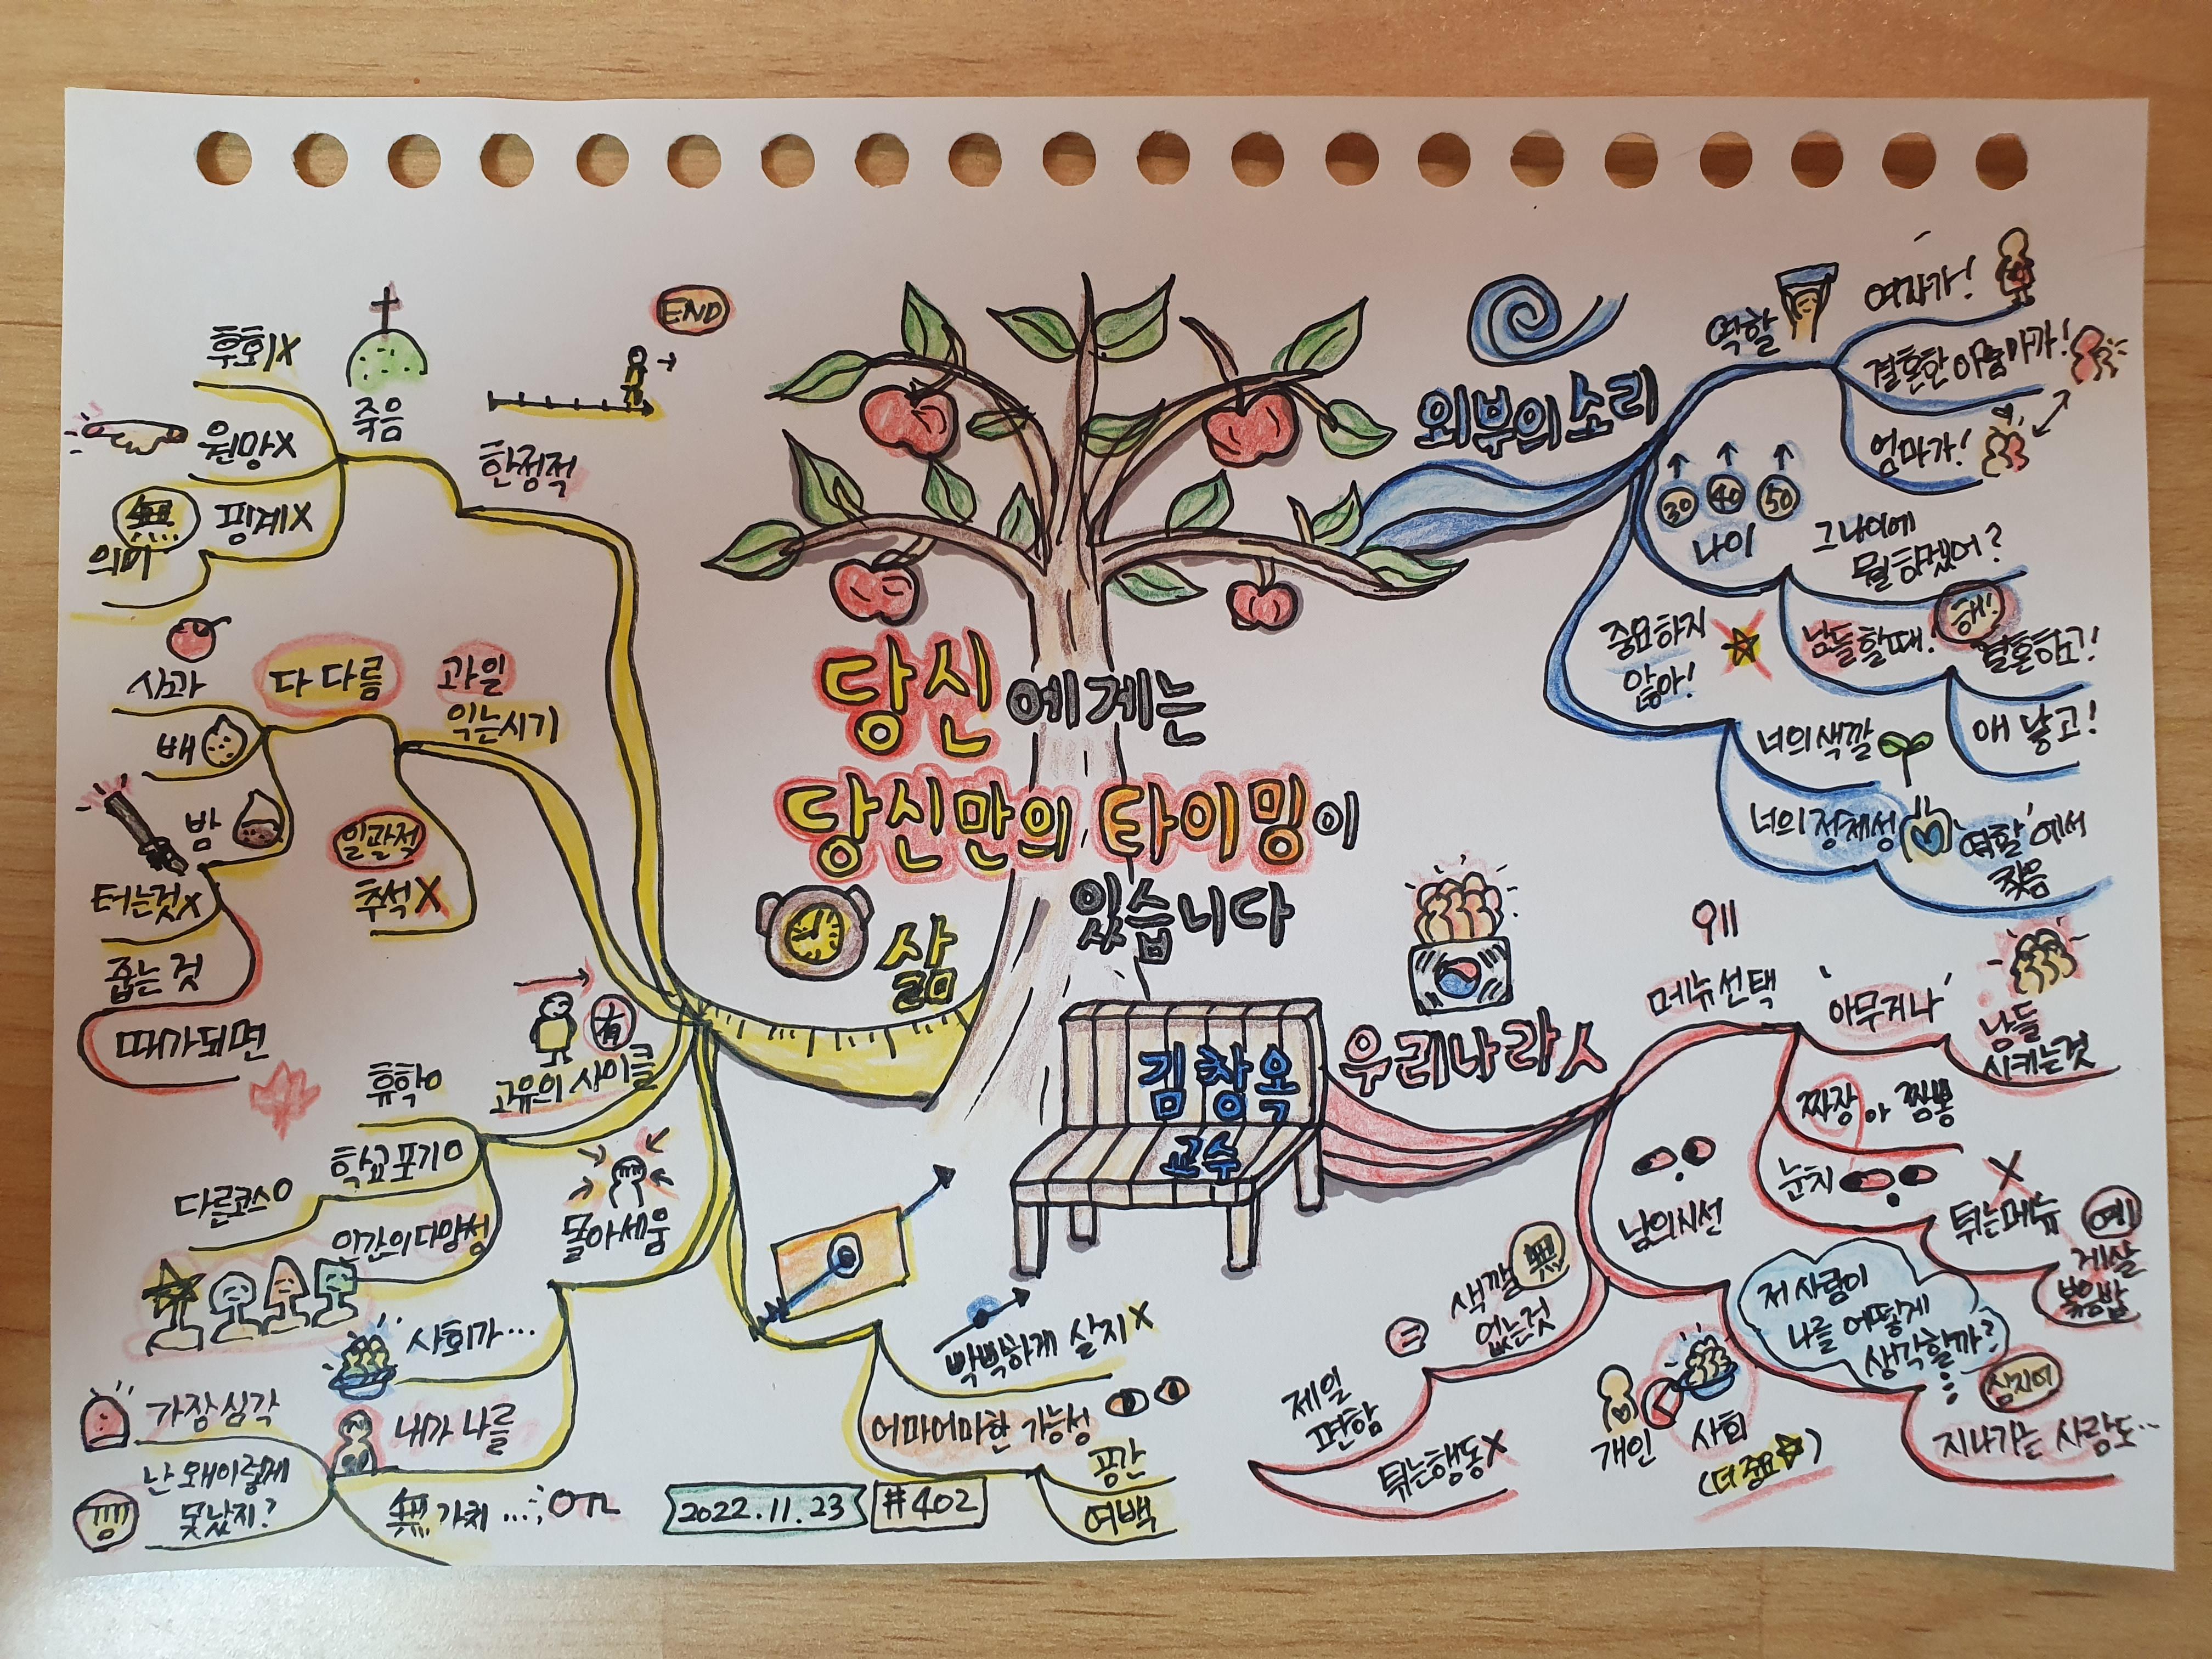 당신에게는
당신만의 타이밍이
있습니다
김창옥
교수
외부의 소리
역할
여자가!
결혼한 아줌마가!
엄마가!
30 40 50
나이
그 나이에
뭘 하겠어?
남들 할 때!
해!
결혼하고!
애 낳고!
중요하지
않아!
너의 색깔
너의 정체성
'역할'에서
찾음
우리나라 人
왜
메뉴선택
'아무거나'
남들
시키는 것
짜장 아 짬뽕
눈치
X
튀는메뉴
예)
게살
볶음밥
남의시선
저 사람이
나를 어떻게
생각할까?
심지어
지나가는 사람도...
개인
사회
(더 중요☆)
색깔 無
없는것
=
제일
편함
튀는행동X
삶
빡빡하게 살지X
어마어마한 가능성
공간
여백
몰아세움
사회가...
내가 나를
가장 심각
난 왜이렇게
못났지?
無 가치 ... OTL
고유의 사이클
有
휴학O
학교포기O
다른코스O
인간의 다양성
과일
익는시기
다 다름
사과
배
밤
터는것X
줍는 것
때가되면
일괄적
추석X
한정적
END
죽음
후회X
원망X
핑계X
無
의미
2022.11.23
#402